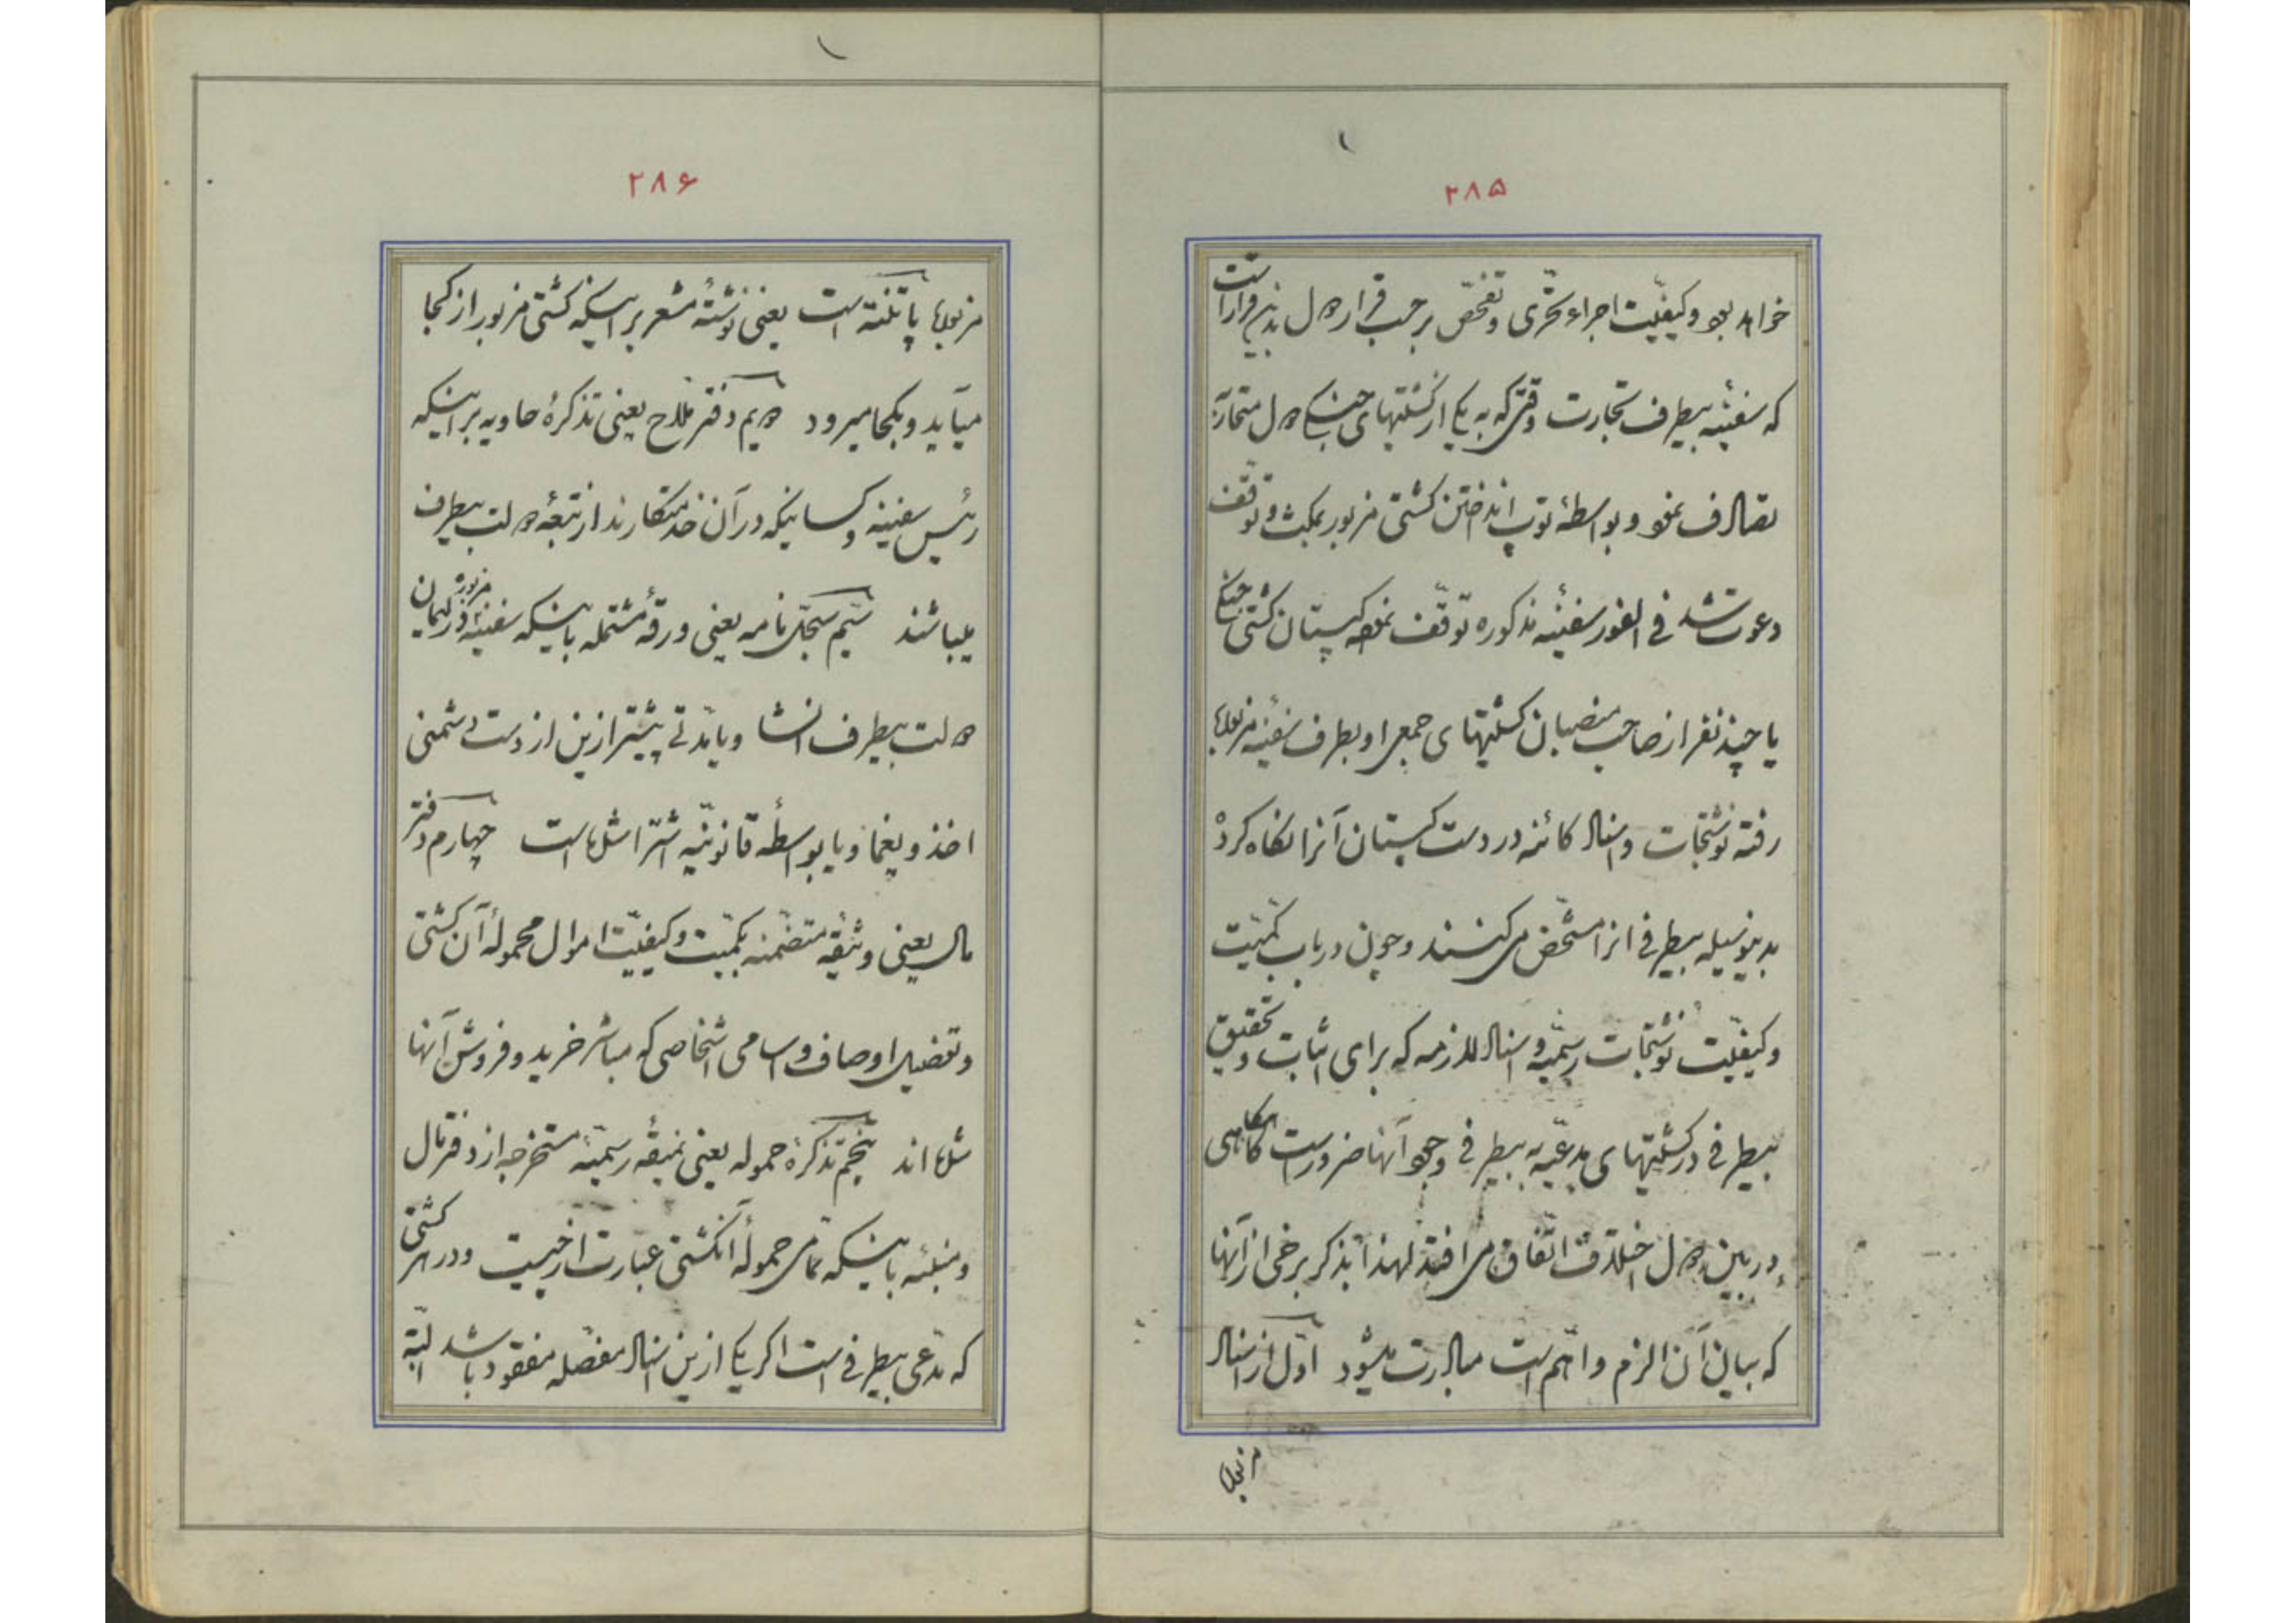 ۲۸۵
خواهد بود و کیفیّت اجراء تحرّی و تفحّص بر حسب قرار دول بدین قرار است
که سفینهٔ بیطرف تجارت وقتی که به یکی از کشتیهای جنگی دول متحاربه
تصادف نمود و بواسطهٔ توپ انداختن کشتی مزبور بمکث و توقّف
دعوت شد فی الفور سفینهٔ مذکوره توقّف نموده کپیتان کشتی جنگی
یا چند نفر از صاحب منصبان کشتیهای جمعی او بطرف سفینه مزبوره
رفته نوشتجات و اسناد کائنه در دست کپیتان آنرا نگاه کرده
بدینوسیله بیطرفی انرا مشخّص می کنند و چون در باب کمّیّت
و کیفیّت نوشتجات رسمیّه و اسناد لازمه که برای اثبات و تحقیق
بیطرفی در کشتیهای مدعّیهٔ بیطرفی وجود آنها ضرور است گاهی
در بین دول اختلاف اتّفاق می افتد لهذا بذکر برخی از آنها
که بیان آن الزم و اهّم است مبادرت میشود اوّل از اسناد
مزبوره
۲۸۶
مزبوره پاتنته است یعنی نوشتهٔ مشعر بر اینکه کشتی مزبور از کجا
میآید و بکجا میرود دویم دفتر ملّاح یعنی تذکرهٔ حاویه بر اینکه
رئیس سفینه و کسانیکه در آن خدمتکارند از تبعهٔ دولت بیطرف
میباشند سیّم سجّل نامه یعنی ورقهٔ مشتمله باینکه سفینهٔ مزبوره در لیمان
دولت بیطرف انشا و یا مدّتی پیشتر ازین از دست دشمنی
اخذ و یغما و یا بواسطهٔ قانونیّه اشترا شده است چهارم دفتر
مال یعنی وثیقه متضمّنه بکمّیّت و کیفیّت اموال محمولهٔ آن کشتی
و تفضیل اوصاف و اسامی اشخاصی که مباشر خرید و فروش آنها
شده اند پنجم تذکرهٔ حموله یعنی نمیقهٔ رسمیّه مستخرجه از دفتر مال
و منبئه باینکه تمامی حمولهٔ آنکشتی عبارت از چیست و در هر کشتی
که مدّعی بیطرفی است اکر یکی ازین اسناد مفصّله مفقود باشد البتّه